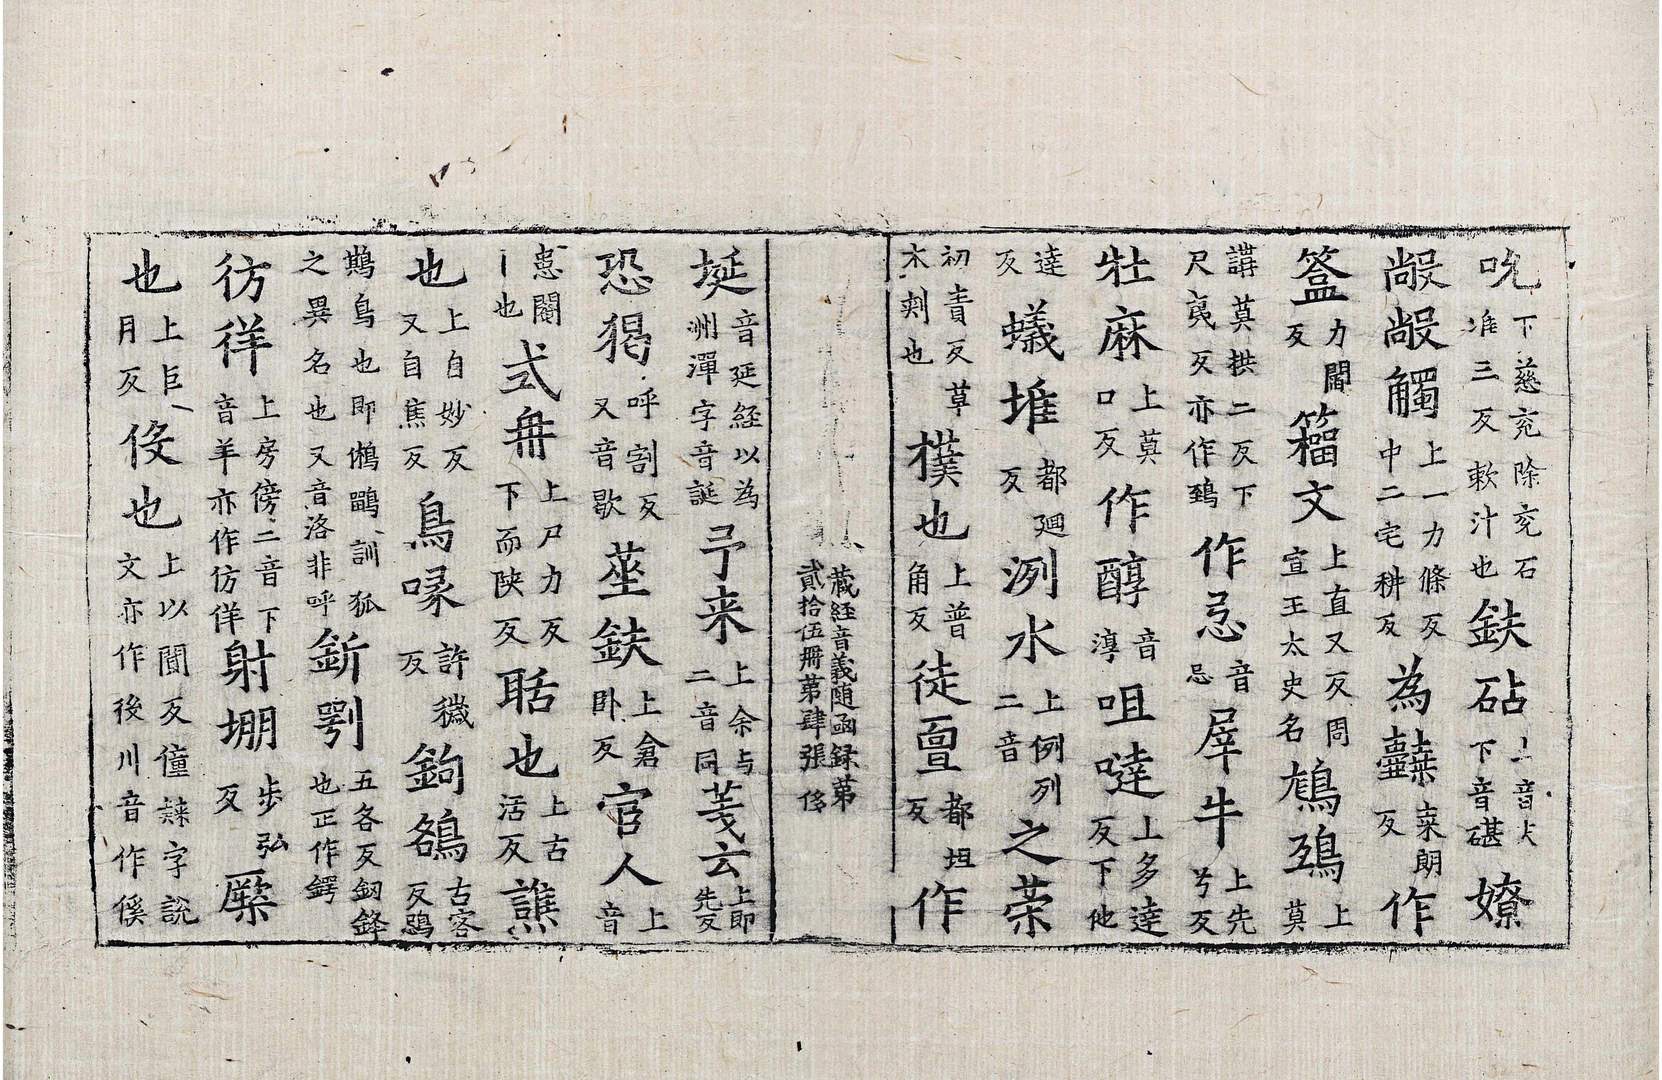 吮下慈兖除兖石堆三反欶汁也鈇砧上音夫下音碪嫽
㲂㲂觸上一力條反中二宅耕反為虀菜朗反作
簽力闔反籀文上直又反周宣王太史名鵴鵶上莫
講莫拱二反下尺夷反亦作鵄作忌音忌犀牛上先兮反
牡麻上莫口反作醇音淳咀噠上多達反下他
達反蟻堆都廻反洌水上例列二音之荣
初責反草木刺也樸也上普角反徒亶都坦反作
藏経音義随函録第貳拾伍册第肆張 侈
埏音延経以為州渾字音誕予来上余与二音同䇳云上即先反
恐猲呼割反又音歇莝鈇上倉卧反官人上音
患閹丨也式冉上尸力反下而陝反聒也上古活反譙
也上自妙反又自焦反鳥喙許穢反鉤鵅古客反鵄
鵋鳥也即鵂鶹訓狐之異名也又音洛非呼釿剽五各反釼鋒也正作鍔
彷徉上房傍二音下音羊亦作仿佯射堋步弘反厤
也上巨月反伇也上以間反僮隸字說文亦作後川音作傒